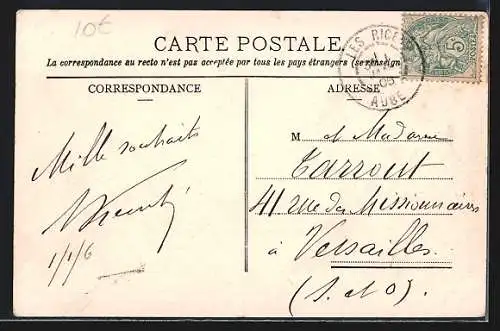 10€
CARTE POSTALE
La correspondance au recto n'est pas acceptée par tous les pays étrangers (se renseign
CORRESPONDANCE
ADRESSE
LES RICEYS
AUBE
5
Mille souhaits
1/1/6
M et Madame
Tarrout
41 rue des Missionnaires
à Versailles
(S. et O).